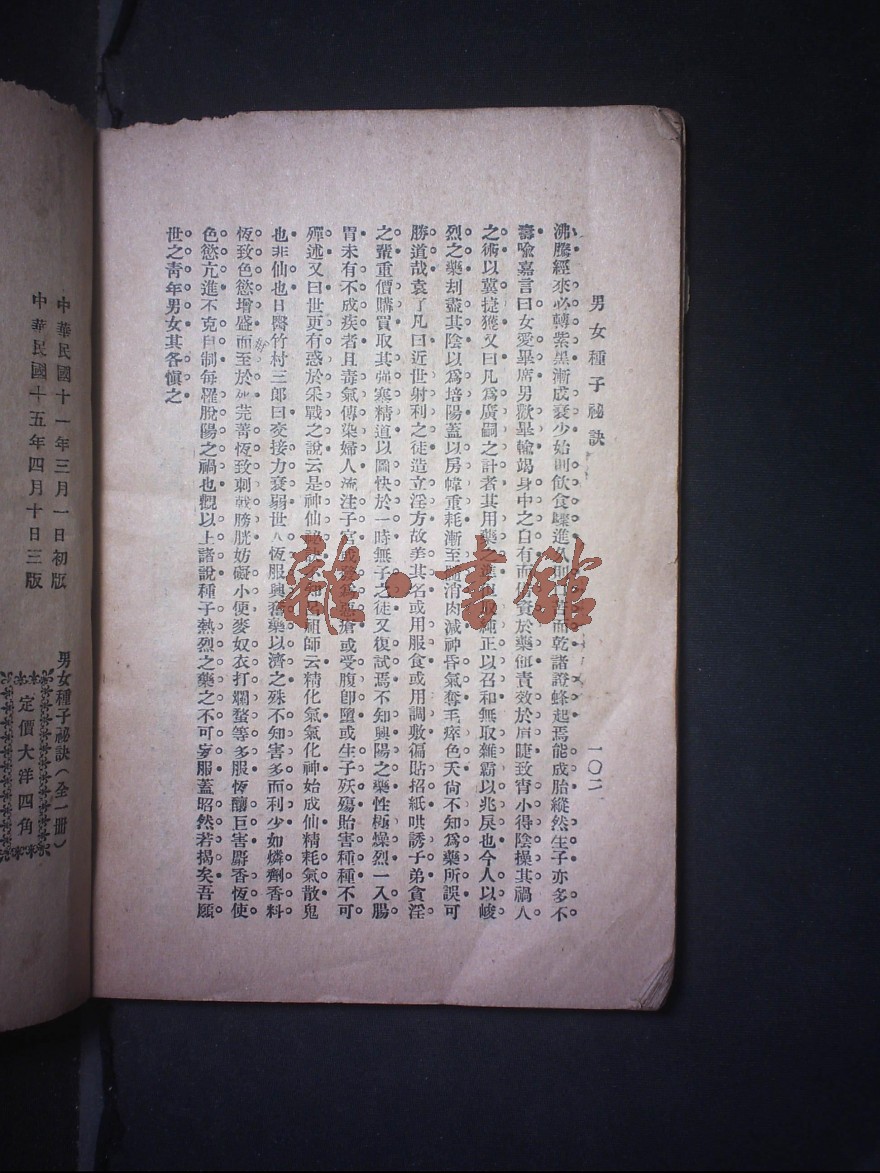 男女種子祕訣
一〇二
沸騰經來必轉紫黑漸成衰少始則飲食驟進久則口苦而乾諸證蜂起焉能成胎縱然生子亦多不
壽喩嘉言曰女愛畢席男歡畢輸竭身中之自有而借資於藥餌責效於眉睫致宵小得陰操其禍人
之術以冀捷獲又曰凡爲廣嗣之計者其用藥之進取純正以召和無取雜霸以兆戾也今人以峻
烈之藥刦盡其陰以爲培陽蓋以房幃重耗漸至髓消肉減神昏氣奪毛瘁色夭尙不知爲藥所誤可
勝道哉袁了凡曰近世射利之徒造立淫方故美其名或用服食或用調敷徧貼招紙哄誘子弟貪淫
之輩重價購買取其强寒精道以圖快於一時無子之徒又復試焉不知興陽之藥性極燥烈一入腸
胃未有不成疾者且毒氣傳染婦人流注子宮或發爲惡瘡或受腹卽墮或生子殀殤貽害種種不可
殫述又曰世更有惑於采戰之說云是神仙祕訣不知呂祖師云精化氣氣化神始成仙精耗氣散鬼
也非仙也日醫竹村三郎曰交接力衰弱世人恆服興奮藥以濟之殊不知害多而利少如燐劑香料
恆致色慾增盛而至於 芫菁恆致刺戟膀胱妨礙小便麥奴衣打爛蝥等多服恆釀巨害麝香恆使
色慾亢進不克自制每罹脫陽之禍也觀以上諸說種子熱烈之藥之不可妄服蓋昭然若揭矣吾願
世之靑年男女其各愼之
中華民國十一年三月一日初版
中華民國十五年四月十日三版
男女種子祕訣(全一冊)
定價大洋四角
雜·書館